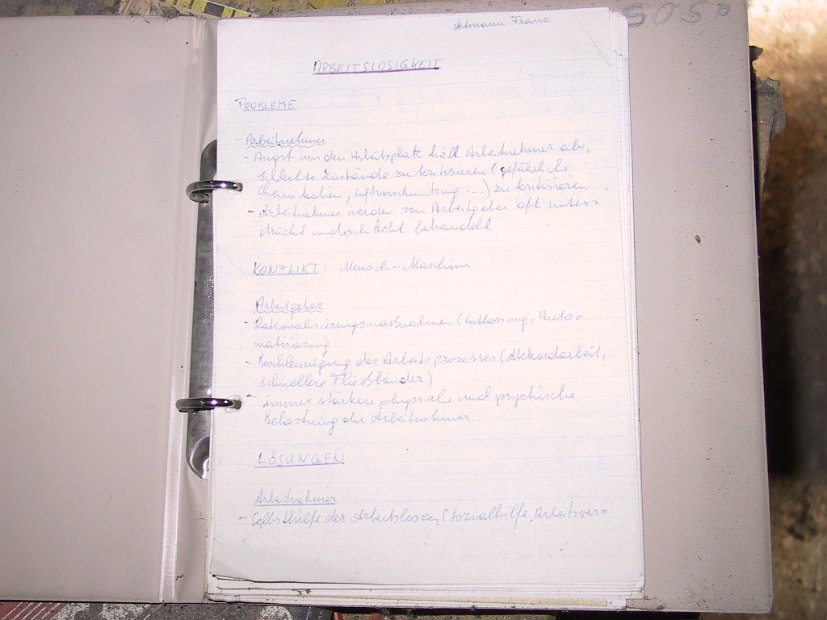 Franz
ARBEITSLOSIGKEIT
PROBLEME
Arbeitnehmer
- Angst um den Arbeitsplatz hält Arbeitnehmer ab,
schlechte Zustände zu kritisieren (gefährliche
Chemikalien, Luftverschmutzung ...) zu kritisieren
- Arbeitnehmer werden von Arbeitgeber oft unter=
drückt und schlecht behandelt
KONFLIKT: Mensch - Maschine
Arbeitgeber
- Rationalisierungsmaßnahmen (Entlassung, Auto=
matisierung
- Beschleunigung des Arbeitsprozesses (Akkordarbeit,
schnellere Fließbänder)
- immer stärkere physische und psychische
Belastung der Arbeitnehmer.
LÖSUNGEN
Arbeitnehmer
- Selbsthilfe der Arbeitslosen (Sozialhilfe, Arbeitsver=